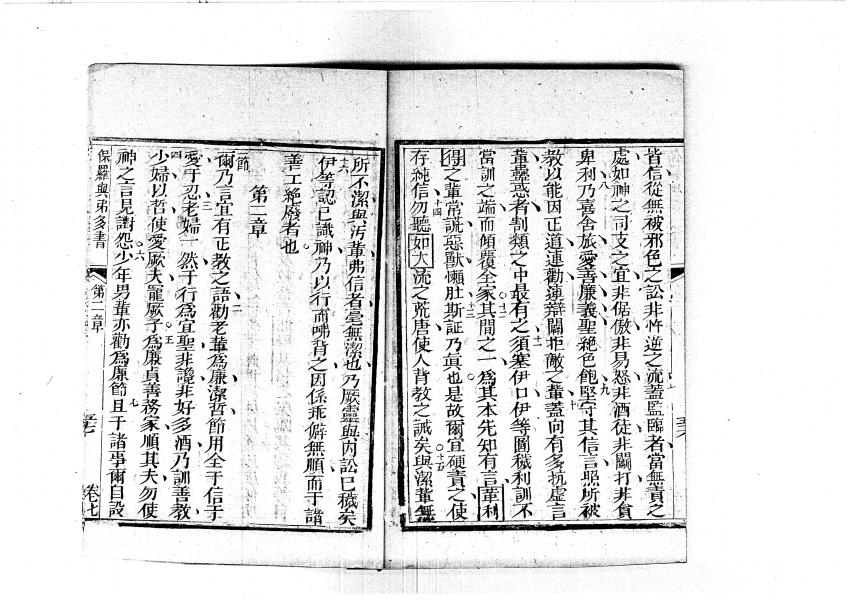 皆信從無被邪色之訟非忤逆之流蓋監臨者當無責之
處如神之司支之宜非倨傲非易怒非酒徒非鬬打非貪
卑利乃喜舍旅愛善廉義聖絕色飽堅守其信言照所被
教以能因正道連勸連辯闢拒敵之輩蓋向有多抗虛言
輩蠱惑者割類之中最有之須塞伊口伊等圖穢利訓不
當訓之端而傾覆全家其間之一為其本先知有言革利
得之輩常謊惡獸懶肚斯証乃眞也是故爾宜硬責之使
存純信勿聽如大流之荒唐使人背教之誡矣與潔輩無
所不潔與汚輩弗信者毫無潔也乃厥靈與內訟已穢矣
伊等認已識神乃以行而咈背之因係乖僻無順而于諸
善工絕廢者也
第二章
爾乃言宜有正教之語勸老輩為廉潔哲節用全于信于
愛于忍老婦一然于行為宜聖非讒非好多酒乃訓善教
少婦以哲使愛厥夫寵厥子為廉貞善務家順其夫勿使
神之言見謗怨少年男輩亦勸為廉節且于諸事爾自設
保羅與弟多書
第二章
卷七